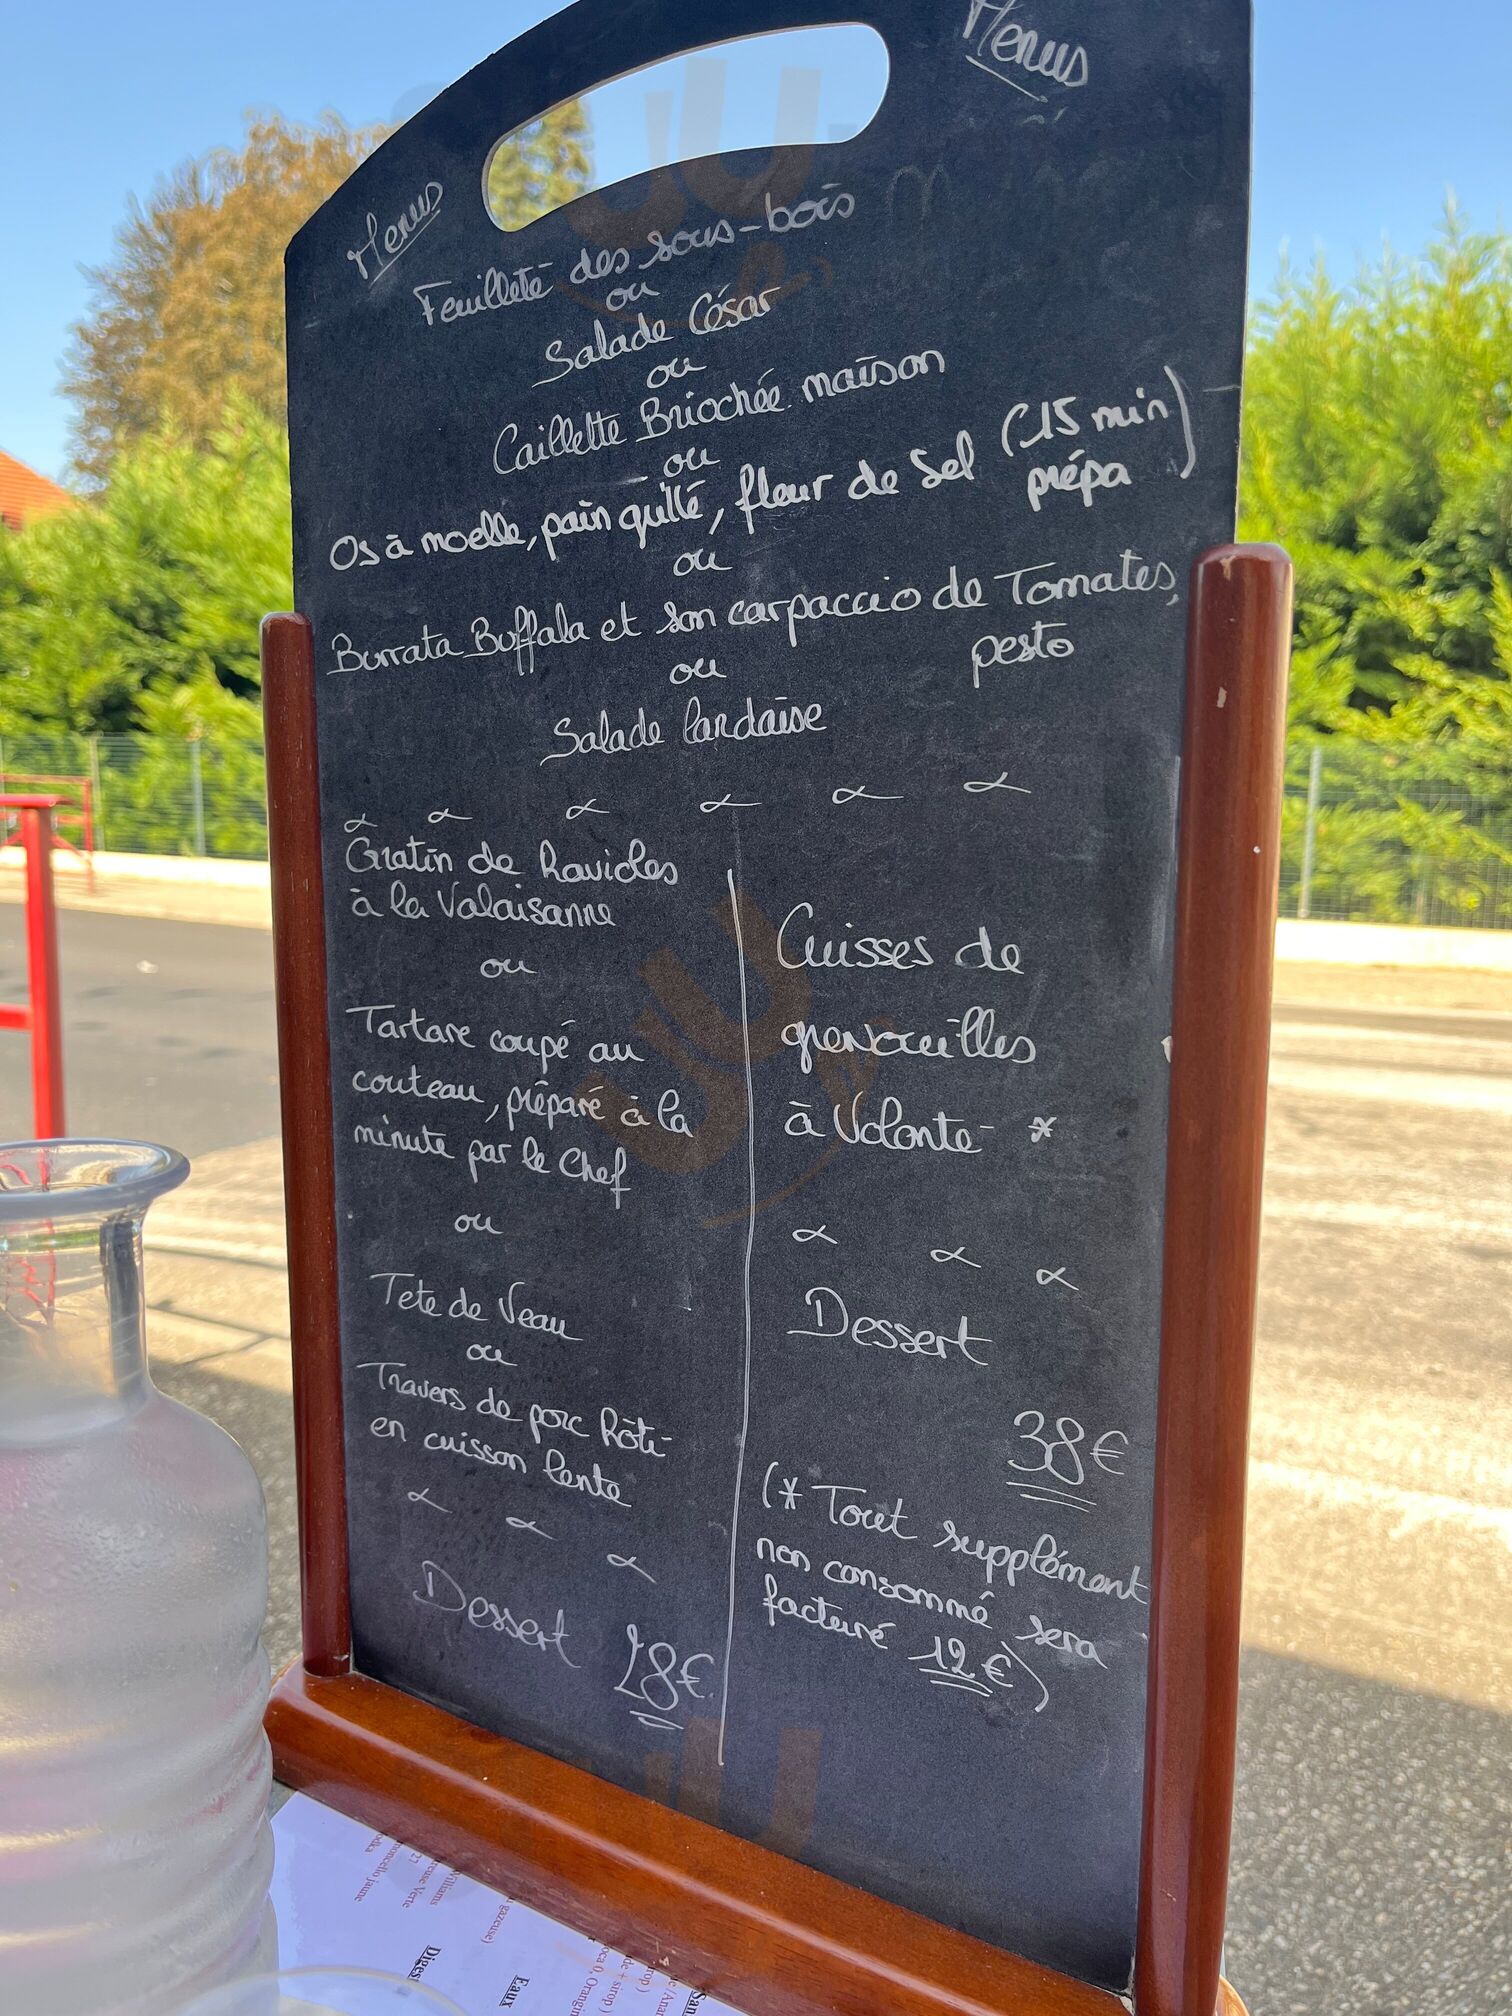 Menus
Menus
Feuilleté des sous-bois
ou
Salade César
ou
Caillette Briochée maison
ou
Os à moelle, pain grillé, fleur de sel (15 min)
prépa
ou
Burrata Buffala et son carpaccio de Tomates,
pesto
ou
Salade landaise
Gratin de Ravioles
à la Valaisanne
ou
Tartare coupé au
couteau, préparé à la
minute par le Chef
ou
Tete de Veau
ou
Travers de porc Rôti
en cuisson lente
Dessert 28€
Cuisses de
grenouilles
à Volonté *
Dessert
38€
(* Tout supplément
non consommé sera
facturé 12€)
Williams
Verte
27
jaune
gazeuse)
Eaux